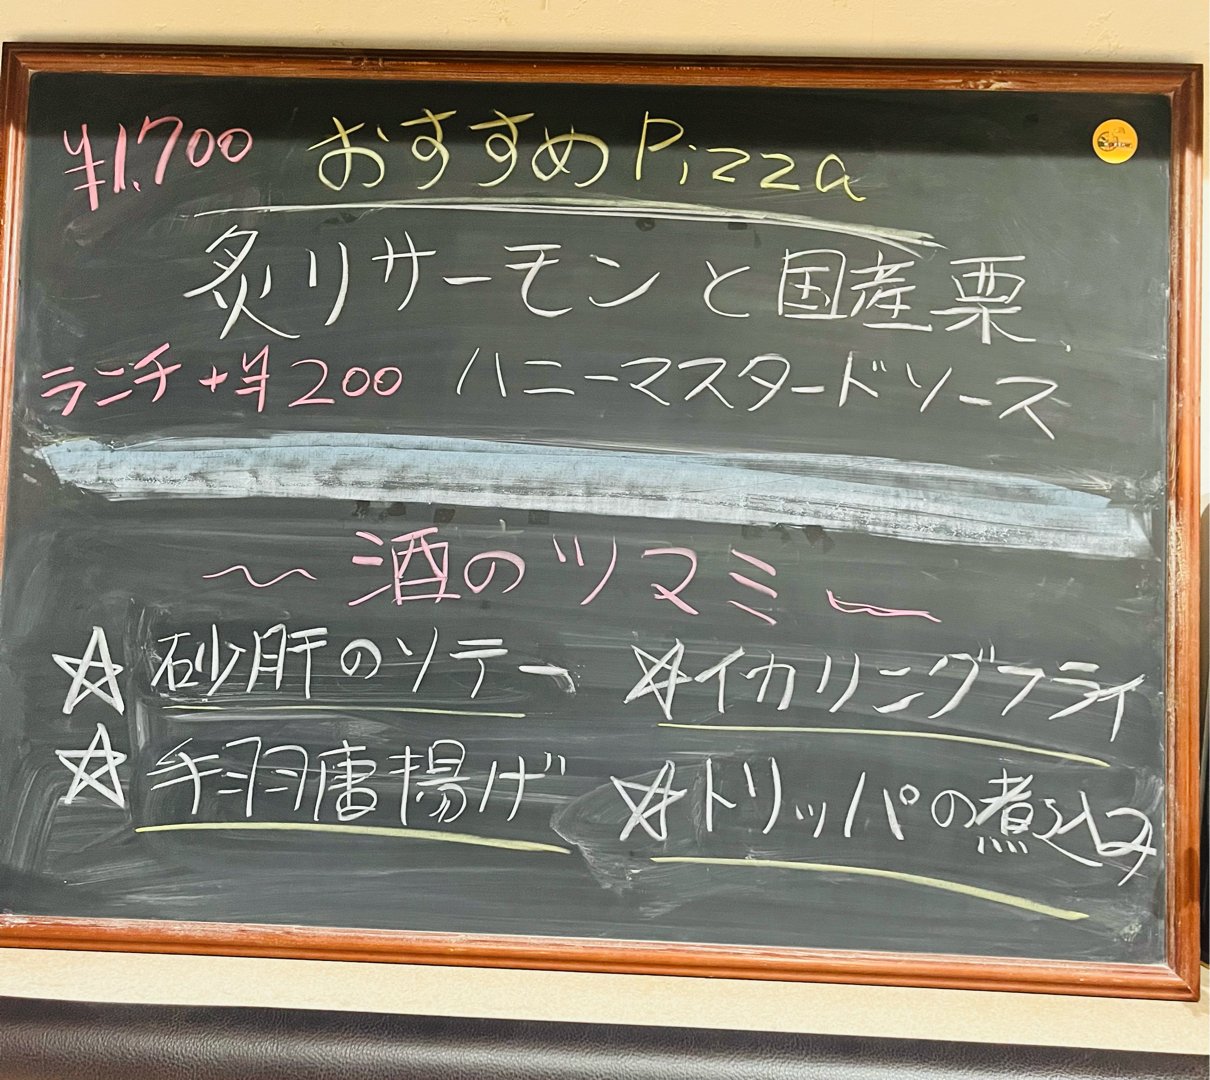 ¥1.700 おすすめ Pizza
炙りサーモンと国産栗
ランチ+¥200 ハニーマスタードソース
~酒のツマミ~
☆砂肝のソテー ☆イカリングフライ
☆手羽唐揚げ ☆トリッパの煮込み